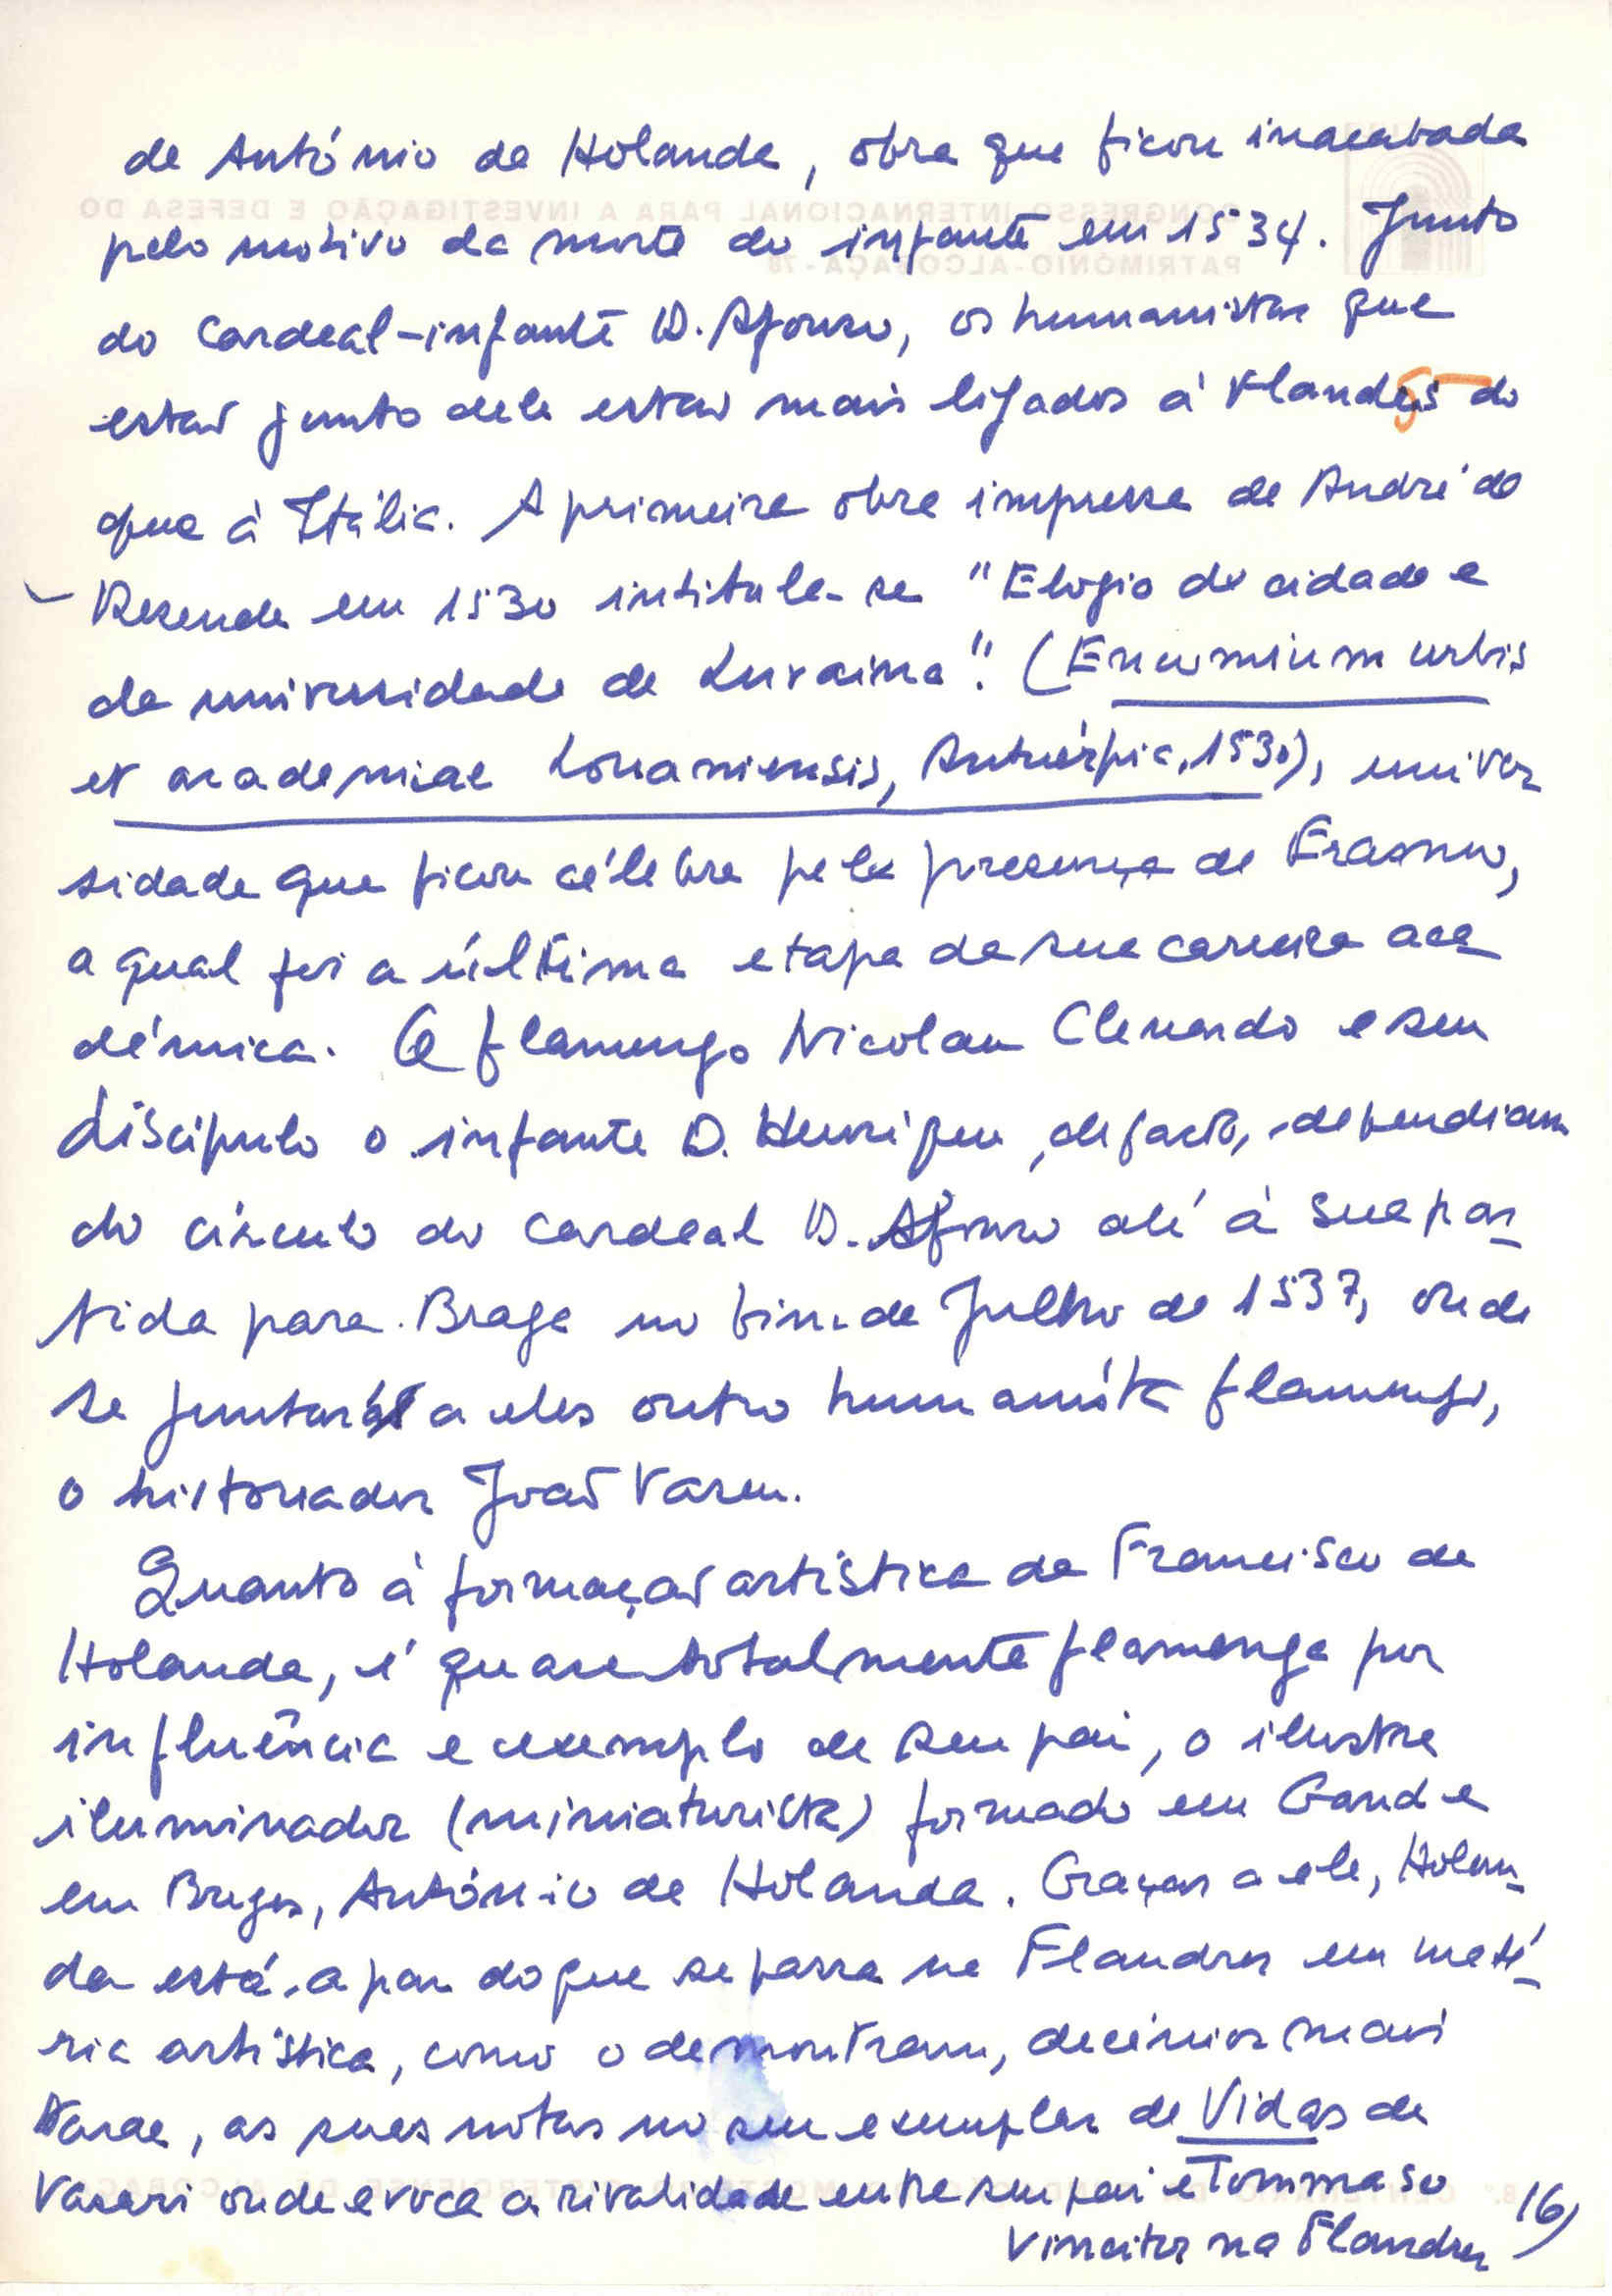 de António de Holanda, obra que ficou inacabada
pelo motivo da morte do infante em 1534. Junto
do Cardeal-infante D. Afonso, os humanistas que
estão junto dele estão mais ligados à Flandres do
que à Itália. A primeira obra impressa de André de
Resende em 1530 intitula-se "Elogio da cidade e
da universidade de Luvaina". (Encomium urbis
et academiae Lovaniensis, Antuérpia, 1530), univer
sidade que ficou célebre pela presença de Erasmo,
a qual foi a última etapa da sua carreira aca
démica. O flamengo Nicolau Clenardo e seu
discípulo o infante D. Henrique, de facto, dependiam
do círculo do Cardeal D. Afonso até à sua par-
tida para Braga no fim de Julho de 1537, onde
se juntará a eles outro humanista flamengo,
o historiador João Vaseu.
Quanto à formação artística de Francisco de
Holanda, é quase totalmente flamenga por
influência e exemplo de seu pai, o ilustre
iluminador (miniaturista) formado em Gand e
em Bruges, António de Holanda. Graças a ele, Holan-
da está a par do que se passa na Flandres em maté-
ria artística, como o demonstram, decénios mais
tarde, as suas notas no seu exemplar de Vidas de
Vasari onde evoca a rivalidade entre seu pai e Tommaso
Vincitor na Flandres
16)
CONGRESSO INTERNACIONAL PARA A INVESTIGAÇÃO E DEFESA DO
PATRIMÓNIO-ALCOBAÇA-78